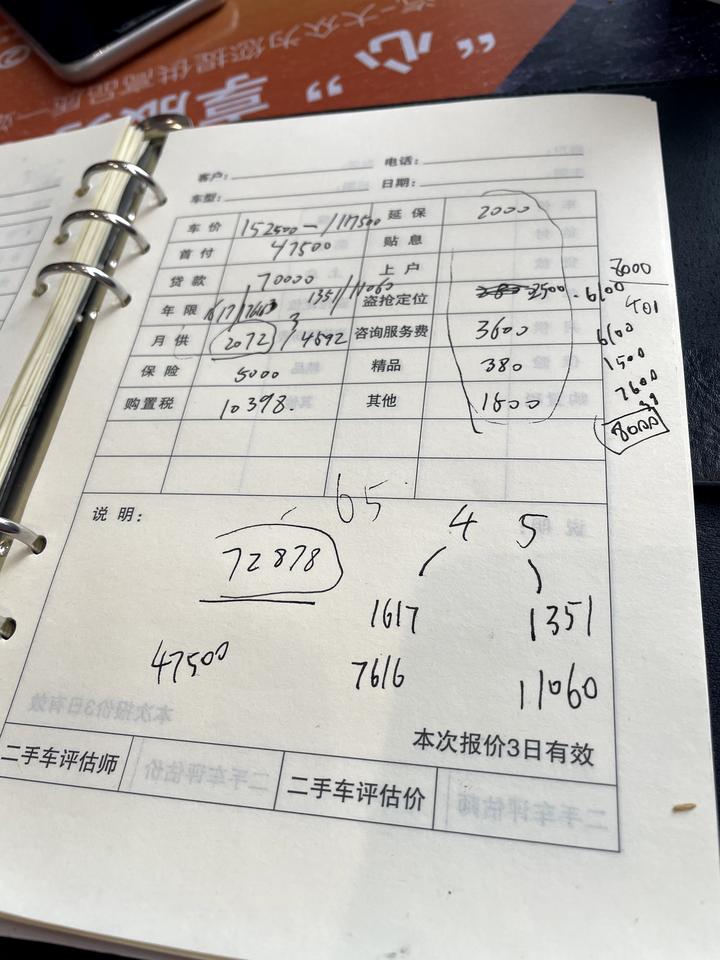 “心
享
客户： 电话：
车型： 日期：
车价 152500-/117500 延保 2000
首付 47500 贴息
贷款 70000 上户
年限 1617/7616 3 1351/11060 盗抢定位 2500 . 6100
月供 2072 / 4592 咨询服务费 3600
保险 5000 精品 380
购置税 10398. 其他 1800
401
6600
1500
2600
8000
说明： 65
72878
4 5
1617 1351
47500 7616 11060
本次报价3日有效
二手车评估师 二手车评估价